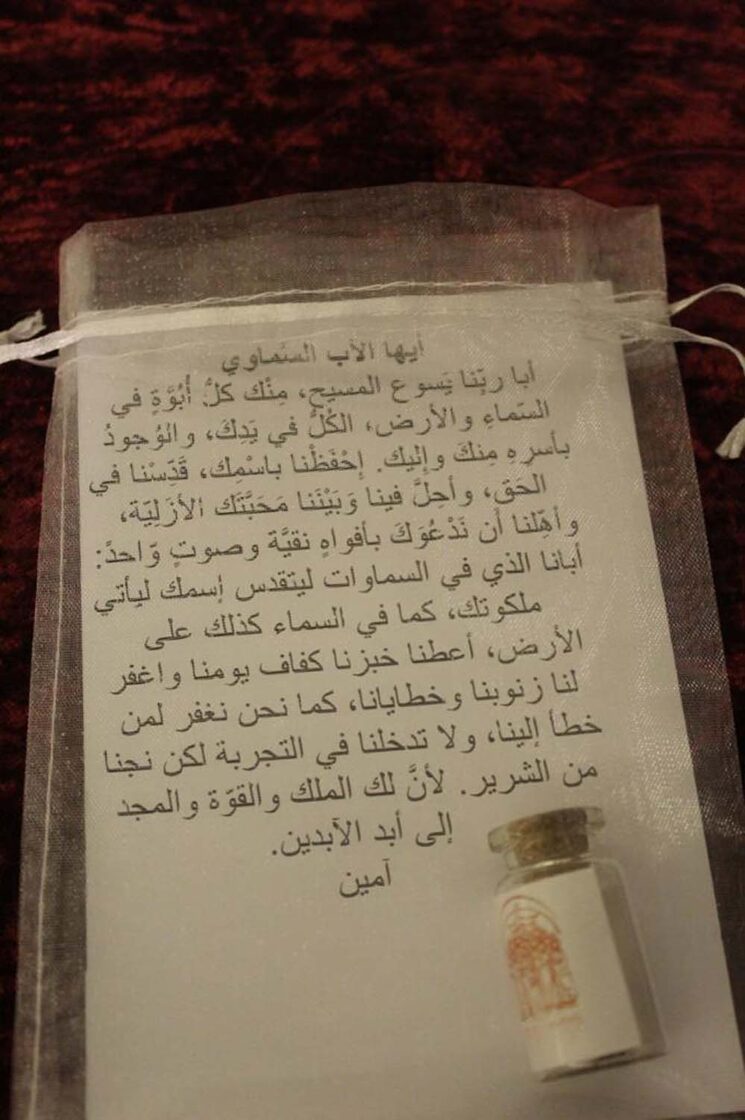 أيها الأب السَّماوي
أبا ربِّنا يَسوع المسيح، مِنْك كلُّ أُبُوَّةٍ في
السَّماءِ والأرض، الكُلُّ في يَدِكَ، والوُجودُ
بأسرِهِ مِنكَ وإليك. إحْفَظْنا باسْمِك، قَدِّسْنا في
الحَقِ، وأحِلَّ فينا وَبَيْنَنا مَحَبَّتَك الأزَلِيّة،
وأهِّلنا أن نَدْعُوَكَ بأفواهٍ نقيَّة وصوتٍ وّاحدً:
أبانا الذي في السماوات ليتقدس إسمك ليأتي
ملكوتك، كما في السماء كذلك على
الأرض، أعطنا خبزنا كفاف يومنا واغفر
لنا زنوبنا وخطايانا، كما نحن نغفر لمن
خطأ إلينا، ولا تدخلنا في التجربة لكن نجنا
من الشرير. لأنَّ لك الملك والقوّة والمجد
إلى أبد الآبدين.
آمين